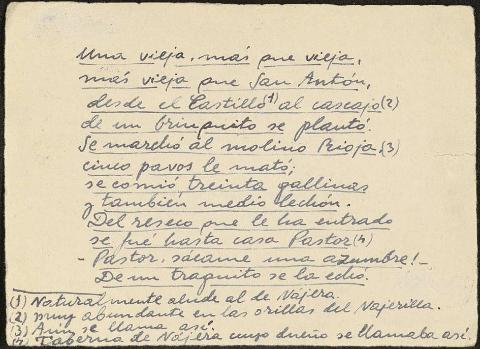 Una vieja, más que vieja,
más vieja que San Antón,
desde el Castillo(1) al cascajo(2)
de un brinquito se plantó.
Se marchó al molino Rioja(3)
cinco pavos le mató;
se comió treinta gallinas
y también medio lechón.
Del reseco que le ha entrado
se fué hasta casa Pastor(4)
- Pastor, sácame una azumbre! -
De un traguito se la echó.
(1) Naturalmente alude al de Nájera.
(2) muy abundante en las orillas del Najerilla.
(3) Aún se llama así.
(4) Taberna de Nájera cuyo dueño se llamaba así.